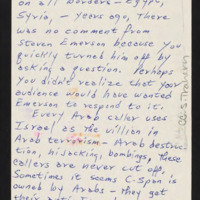 on all borders - Egypt,
Syria, - years ago, There
was no comment from
Steven Emerson because you
quickly turned him off by
asking a question. Perhaps
you didn't realize that your
audience would have wanted
Emerson to respond to it.
Every Arab caller uses
Israel as the villian in
Arab terrorism - Arab destruc-
tion, hijacking, bombings, these
callers are never cut off.
Sometimes it seems C-Span is
owned by Arabs - they get